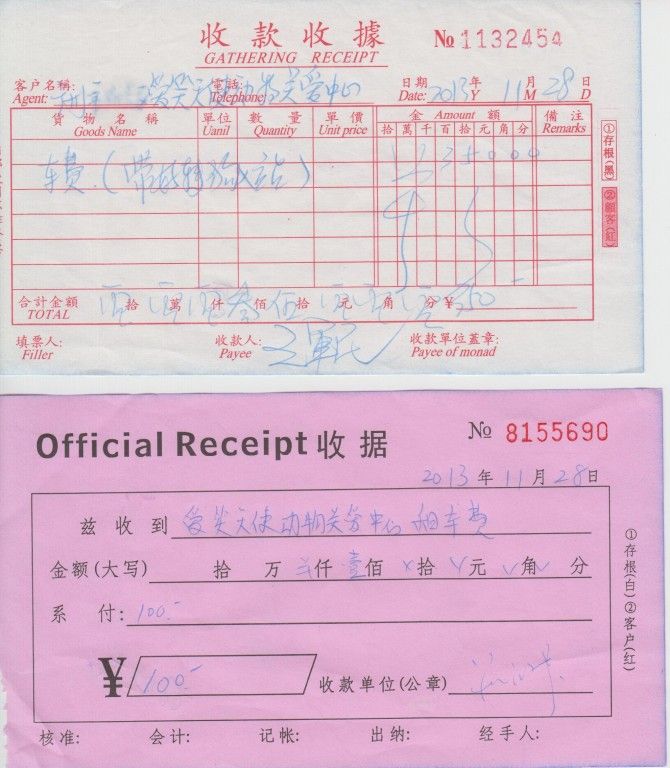 收款收據 № 1132454
GATHERING RECEIPT
客户名稱: 天使动物关爱中心 電話: 日期 2013 年 11 月 28 日
Agent: Telephone: Date: Y M D
貨物名稱 單位 數量 單價 金 Amount 額 備注
Goods Name Uanil Quantity Unit price 拾 萬 千 百 拾 元 角 分 Remarks
车费 35000
①存根(黑)
②顧客(紅)
合计金额 拾 萬 仟 叁 佰 伍 拾 元 角 分 ¥ 350
TOTAL
填票人: 收款人: 收款單位蓋章:
Filler Payee Payee of monad
Official Receipt 收据 № 8155690
2013 年 11 月 28 日
兹收到 爱笑天使动物关爱中心 租车费
金额(大写) 拾 万 仟 壹 佰 拾 元 角 分
系 付: 100.-
¥ 100.- 收款单位(公章)
①存根(白)②客户(红)
核准: 会计: 记帐: 出纳: 经手人: